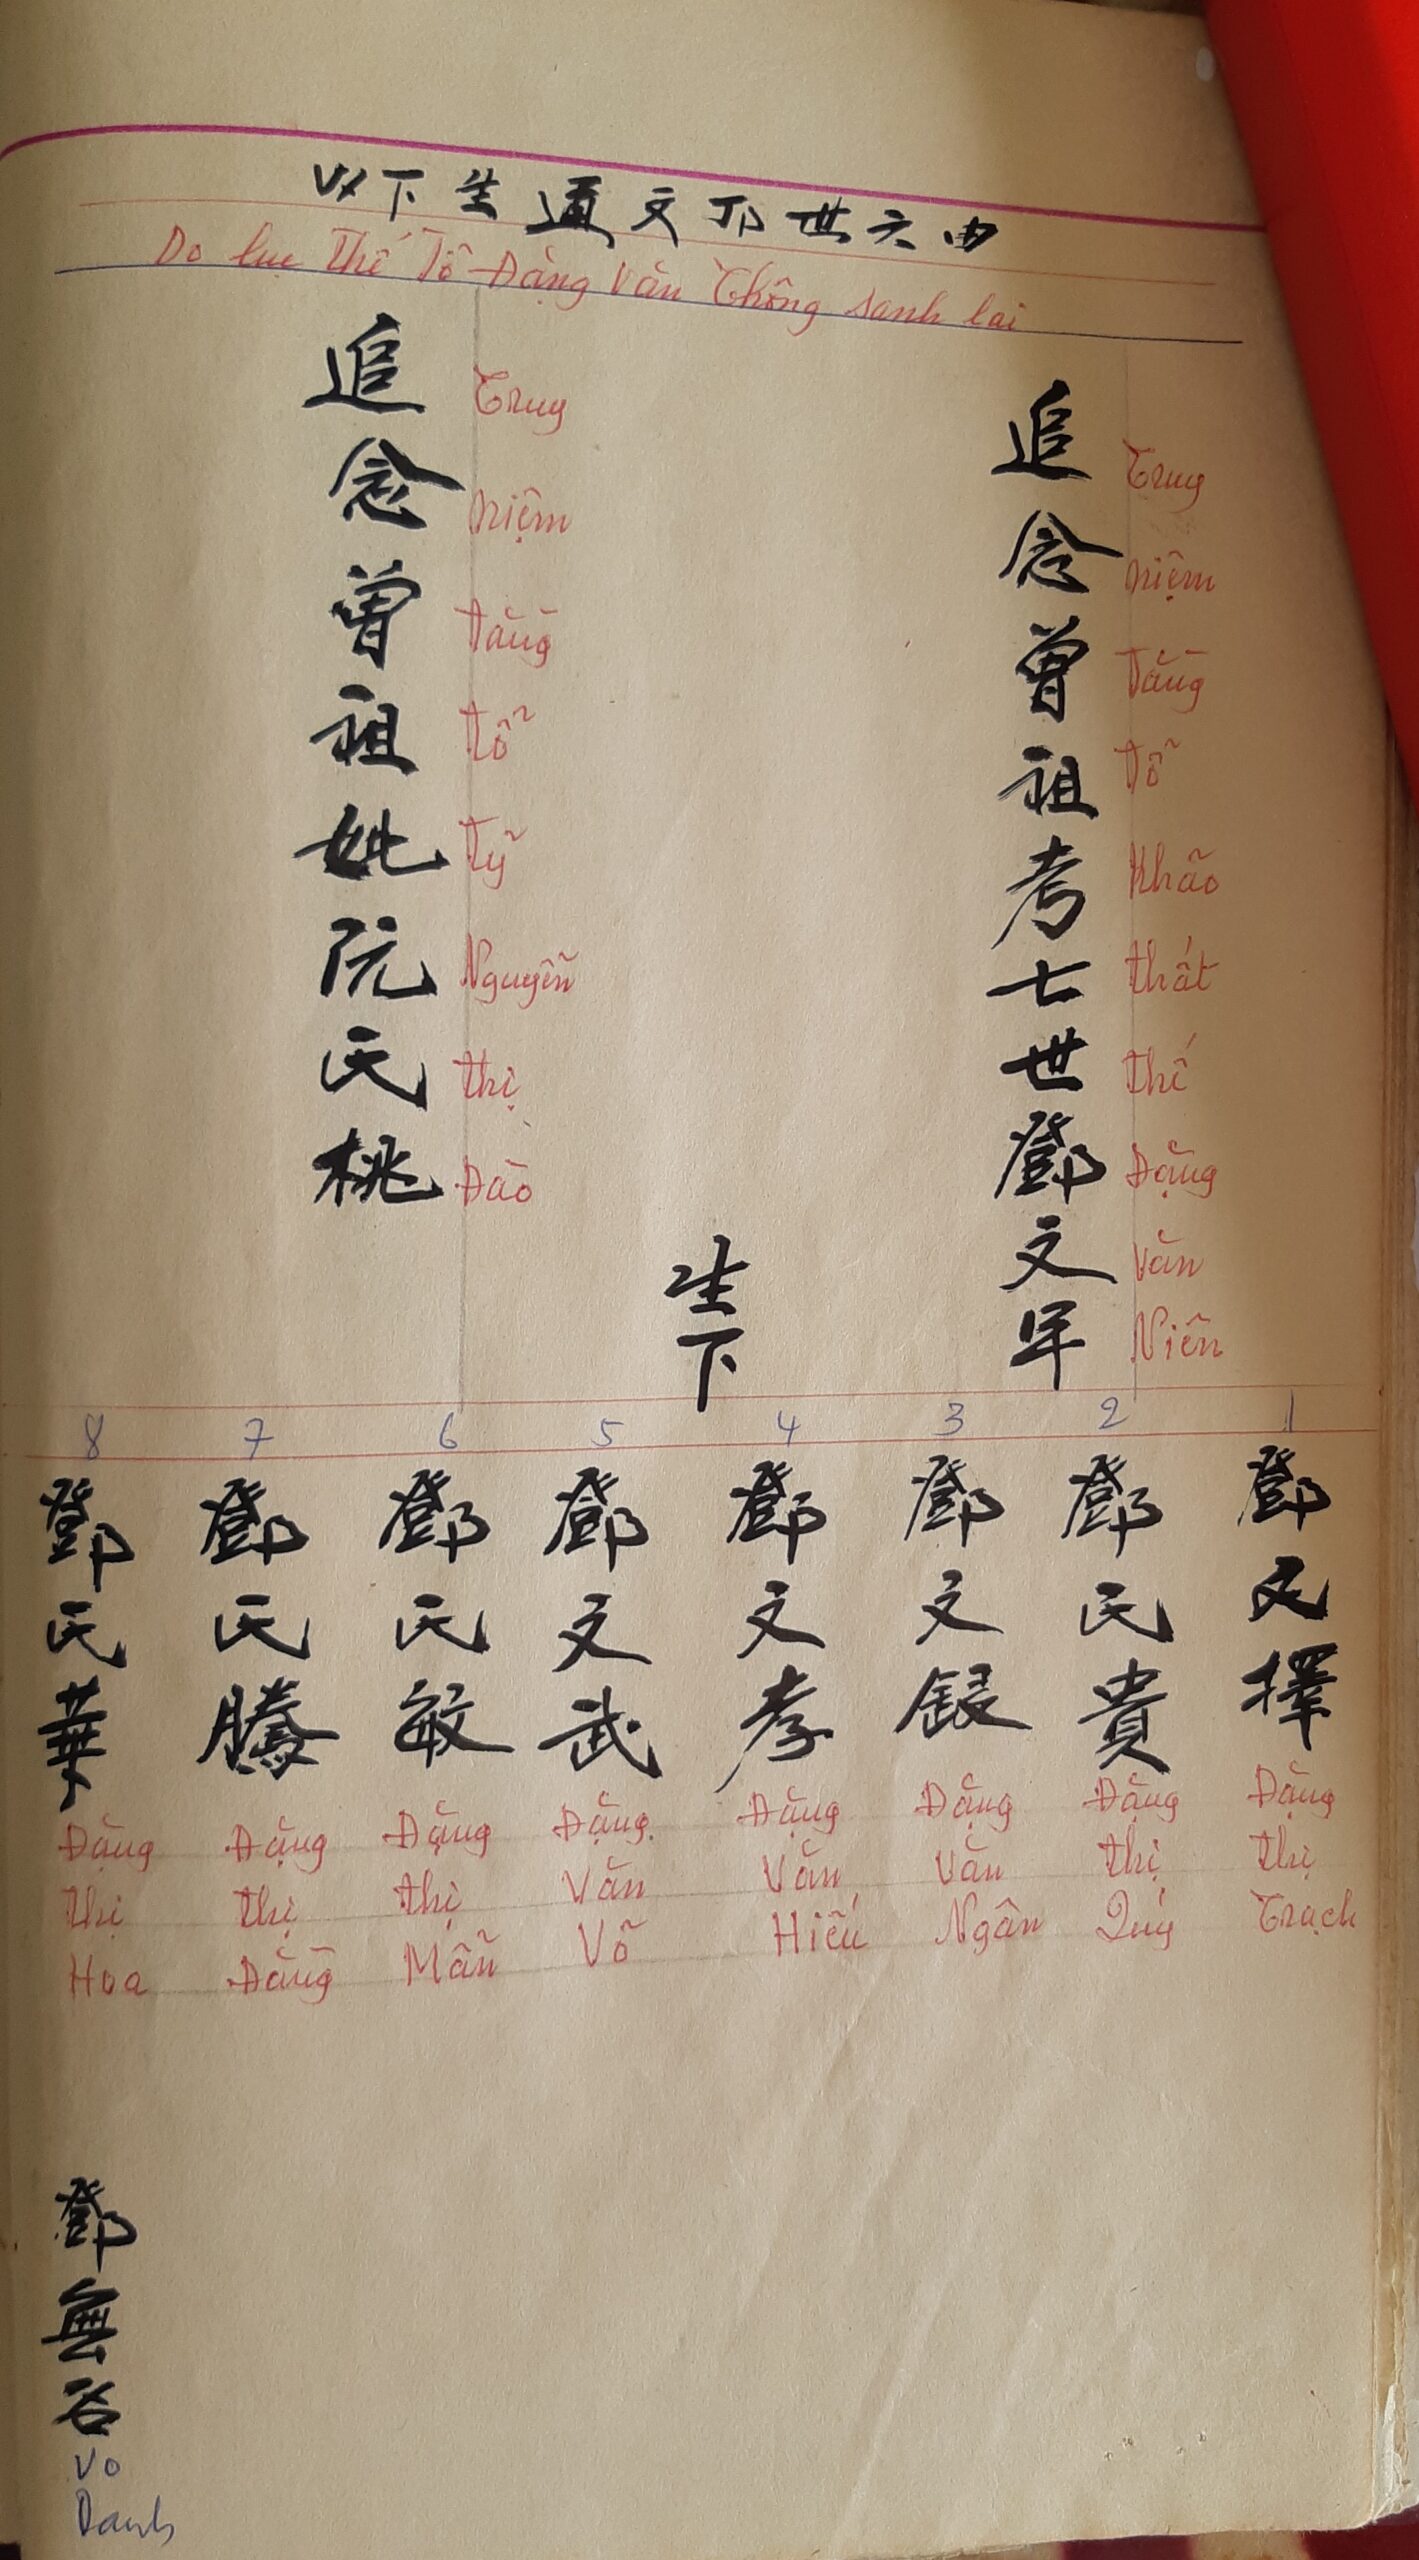 由六世祖文通生下以
Do lục thế Tổ Đặng Văn Thông sanh lai
追念曾祖考七世鄧文年
Truy niệm Tằng Tỗ Khão thất thế Đặng Văn Niên
追念曾祖妣阮氏桃
Truy niệm Tằng tỗ Tỹ Nguyễn thị Đào
生下
1
鄧文擇
Đặng thị Trạch
2
鄧氏貴
Đặng thị Quý
3
鄧文銀
Đặng Văn Ngân
4
鄧文孝
Đặng Văn Hiếu
5
鄧文武
Đặng Văn Võ
6
鄧氏敏
Đặng thị Mẫn
7
鄧氏騰
Đặng thị Đằng
8
鄧氏華
Đặng thị Hoa
鄧無名
Vo Danh